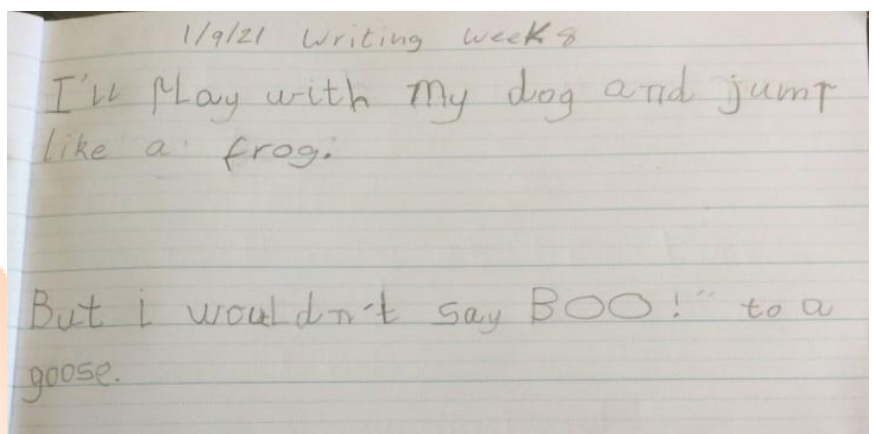 1/9/21 Writing Week 8
I'll Play with My dog and jump
like a frog.
But i wouldn't say BOO!" to a
goose.